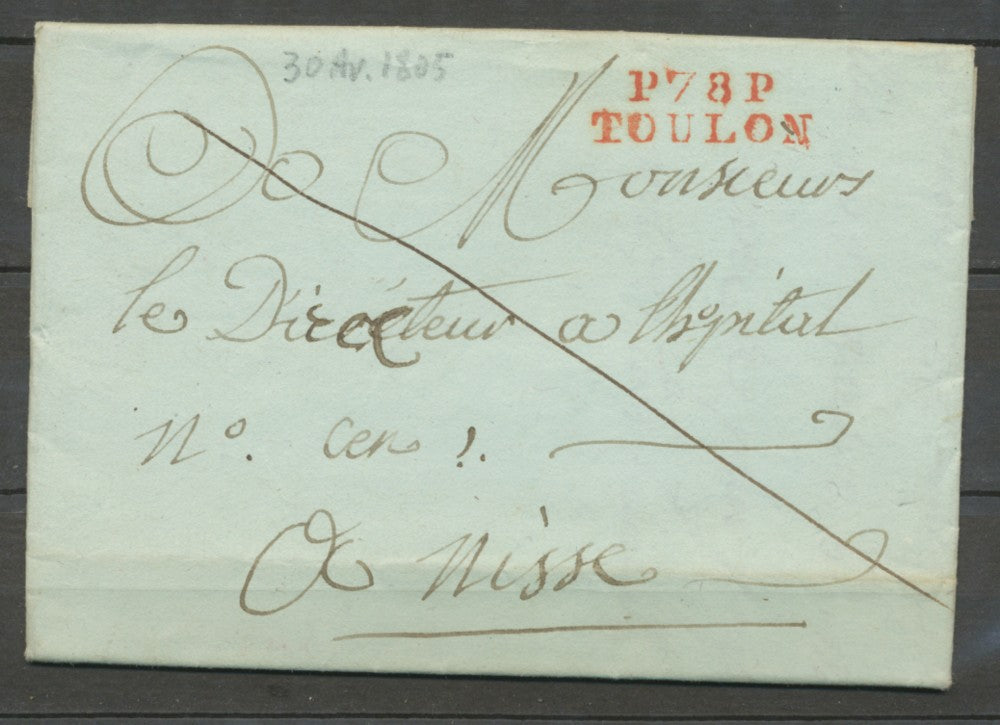 30 Av. 1805
P78P
TOULON
A Monsieur
le Directeur a lhopital
N°. cen !.
A Nisse